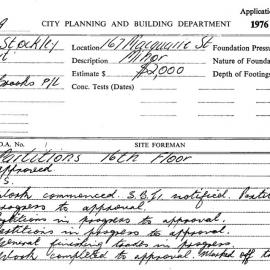 Applicatio
9 CITY PLANNING AND BUILDING DEPARTMENT 1976
Stockley Location 167 Macquarie St Foundation Pressu
Description Minor Nature of Founda
Estimate $ $2,000 Depth of Footings
Brooks P/L Conc. Tests (Dates)
D.A. No. SITE FOREMAN
Partitions 16th Floor
approved
S.
Work commenced. S.B.I. notified.
progress to approval
Partitions in progress to approval.
Partitions in progress to approval.
General finishing trades in progress.
Work completed to approval. Marked off